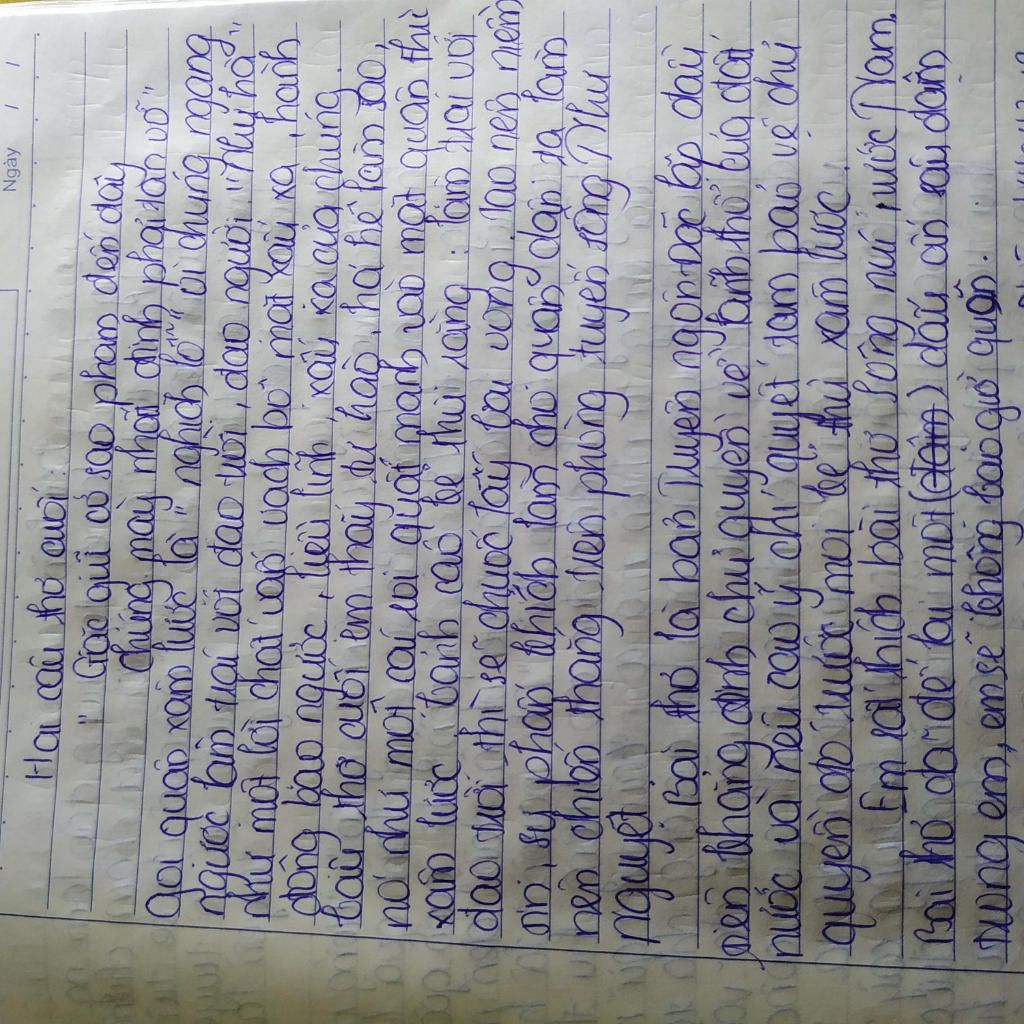 Ngày / /
Hai câu thơ cuối
"Giặc giữ cớ sao phạm đến đây
Chúng mày nhất định phải tan vỡ"
Gọi quân xâm lược là "nghịch lỗ" vì chúng ngang
ngược làm trái với đạo trời, đạo người. "Như hà"
như một lời chất vấp vạch bố mặt xấu xa, hành
động bạo ngược, liều lĩnh, xấu xa của chúng.
Câu thơ cuối em thấy tự hào, há hê làm sao,
nó như một cái roi quật mạnh vào mặt quân thù
xâm lược cảnh cáo bè thù rằng: làm trái với
đạo trời thì sẽ chuốc lấy bại vong. Tạo nên niềm
tin, sự phấn khích làm cho quân dân ta làm
nên chiến thắng trên phòng tuyến sông Như
Nguyệt.
Bài thơ là bản Tuyên ngôn độc lập đầu
tiên khẳng định chủ quyền về lãnh thổ của đất
nước và nêu cao ý chí quyết tâm bảo vệ chủ
quyền đó trước mọi bè thù xâm lược.
Em rất thích bài thơ Sông núi nước Nam.
Bài thơ đã để lại một (đậm) dấu ấn sâu đậm
trong em, em sẽ không bao giờ quên.